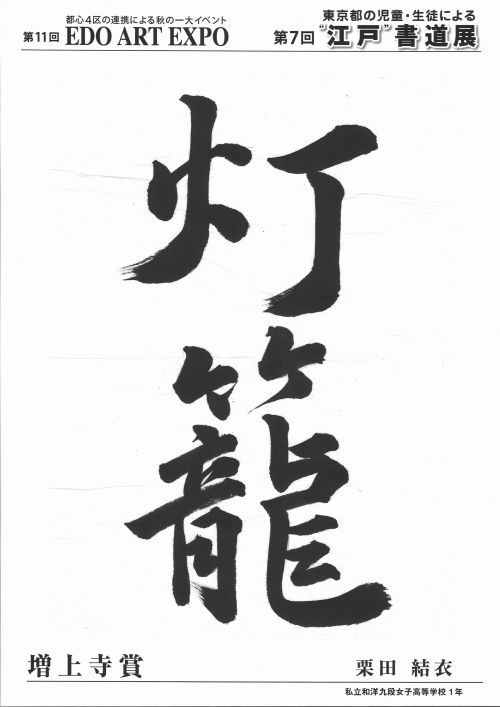 都心4区の連携による秋の一大イベント
第11回 EDO ART EXPO
東京都の児童・生徒による
第7回 “江戸”書道展
灯
籠
増上寺賞
栗田 結衣
私立和洋九段女子高等学校 1年